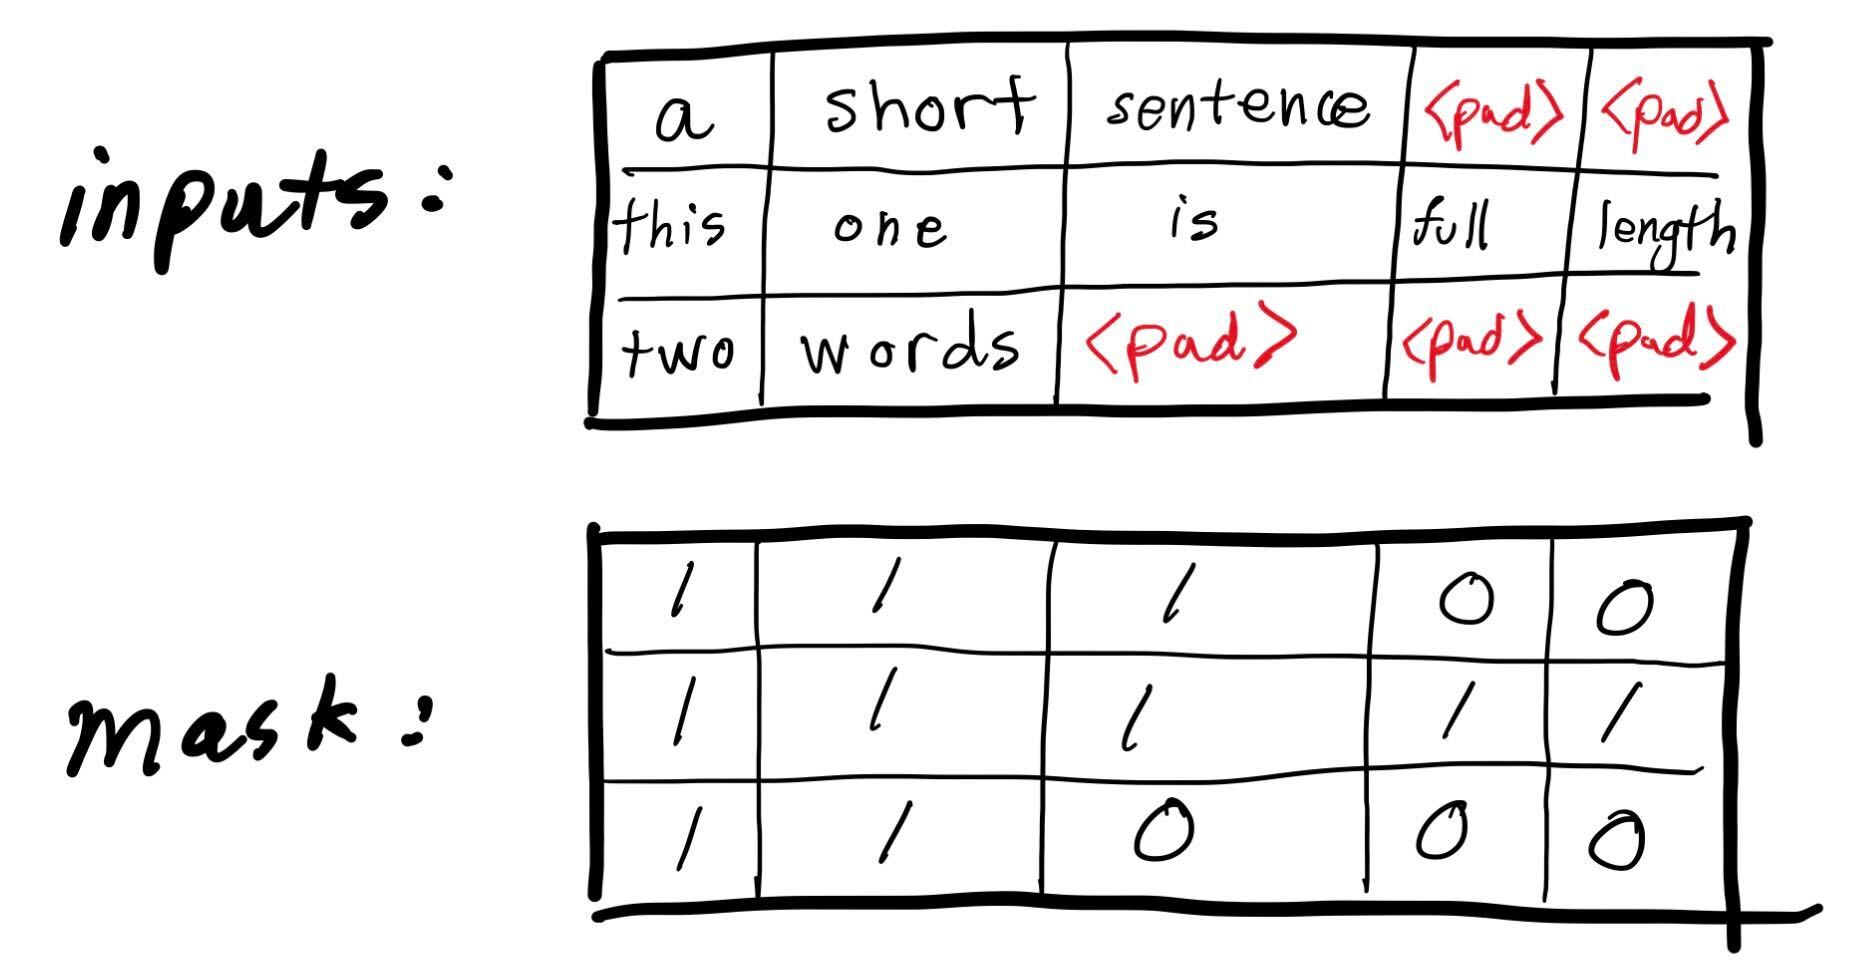 inputs:
a short sentence <pad> <pad>
this one is full length
two words <pad> <pad> <pad>
mask:
1 1 1 0 0
1 1 1 1 1
1 1 0 0 0